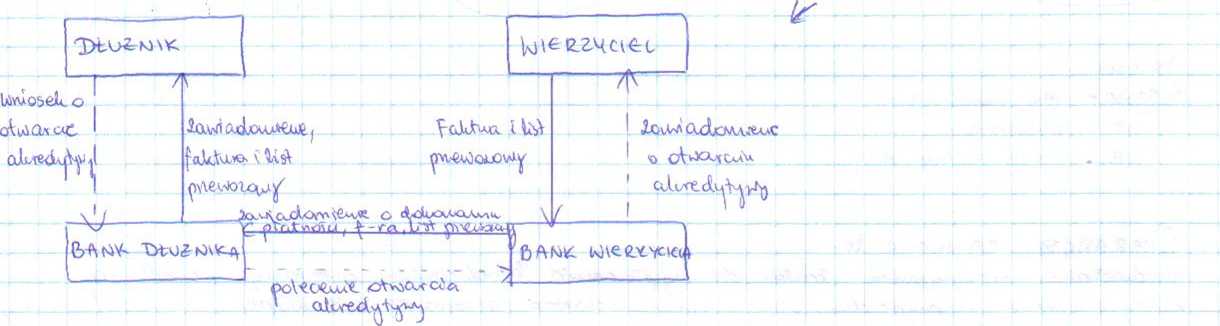 DŁUŻNIK
WIERZYCIEL
wniosek o
otwarcie
akredytywy
zawiadomienie,
faktura i list
przewozowy
Faktura i list
przewozowy
zawiadomienie
o otwarciu
akredytywy
zawiadomienie o dokonaniu
płatności, f-ra, list przewozowy
BANK DŁUŻNIKA
BANK WIERZYCIELA
polecenie otwarcia
akredytywy